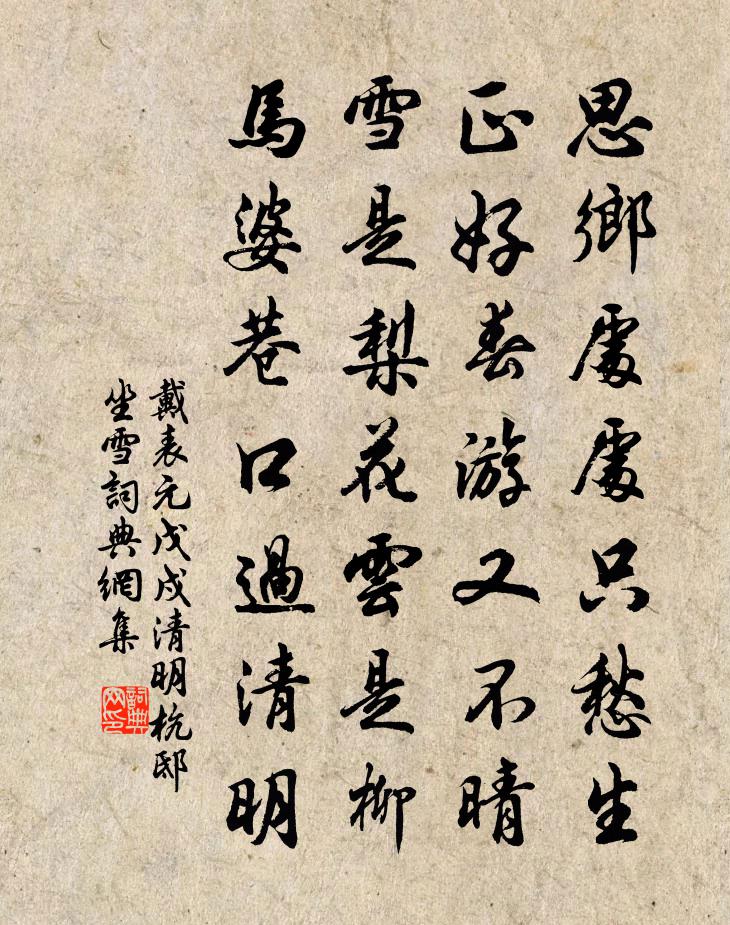 思鄉處處只愁生
正好春游又不晴
雪是梨花雲是柳
馬婆巷口過清明
戴表元戊戌清明杭邸
坐雪詞典網集
詞典网印